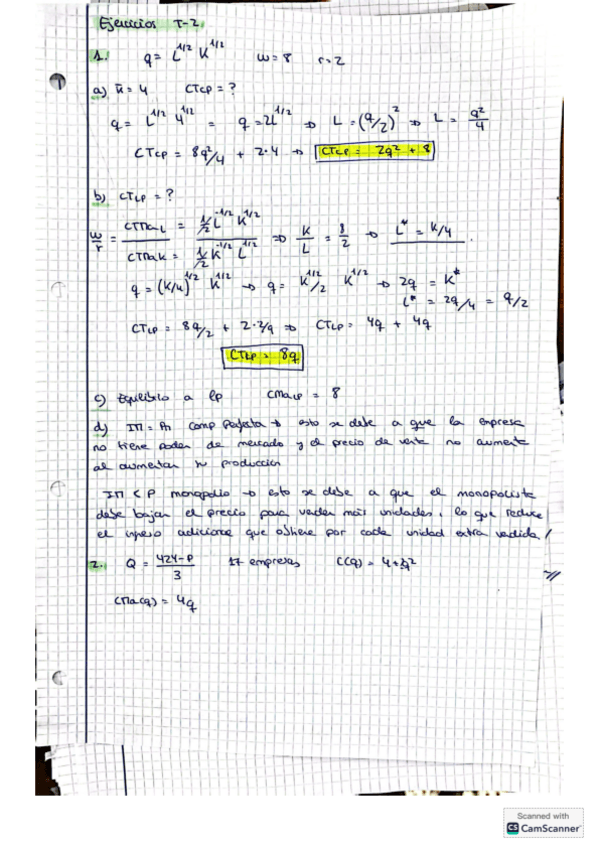 Ejercicios T-2
1. q = L^1/2 K^1/2 w=8 r=2
a) k̄ = 4 CTcp = ?
q = L^1/2 4^1/2 = q = 2L^1/2 ⇒ L = (q/2)^2 ⇒ L = q²/4
CTcp = 8q²/4 + 2·4 → CTcp = 2q² + 8
b) CTLP = ?
w/r = CTMaL / CTMaK = 1/2 L^-1/2 K^1/2 / 1/2 K^-1/2 L^1/2 ⇒ K/L = 8/2 → L* = K/4.
q = (K/4)^1/2 K^1/2 → q = K^1/2/2 K^1/2 → 2q = K*
L* = 2q/4 = q/2
CTLP = 8q/2 + 2·2q ⇒ CTLP = 4q + 4q
CTLP = 8q
c) Equilibrio a lp CMaLP = 8
d) IM = Pn comp perfecta → esto se debe a que la empresa
no tiene poder de mercado y el precio de venta no aumenta
al aumentar su producción
IM < P monopolio → esto se debe a que el monopolista
debe bajar el precio para vender más unidades, lo que reduce
el ingreso adicional que obtiene por cada unidad extra vedida.
2. Q = 424-P/3 17 empresas C(q) = 4+2q²
CMa(q) = 4q
Scanned with
CS CamScanner